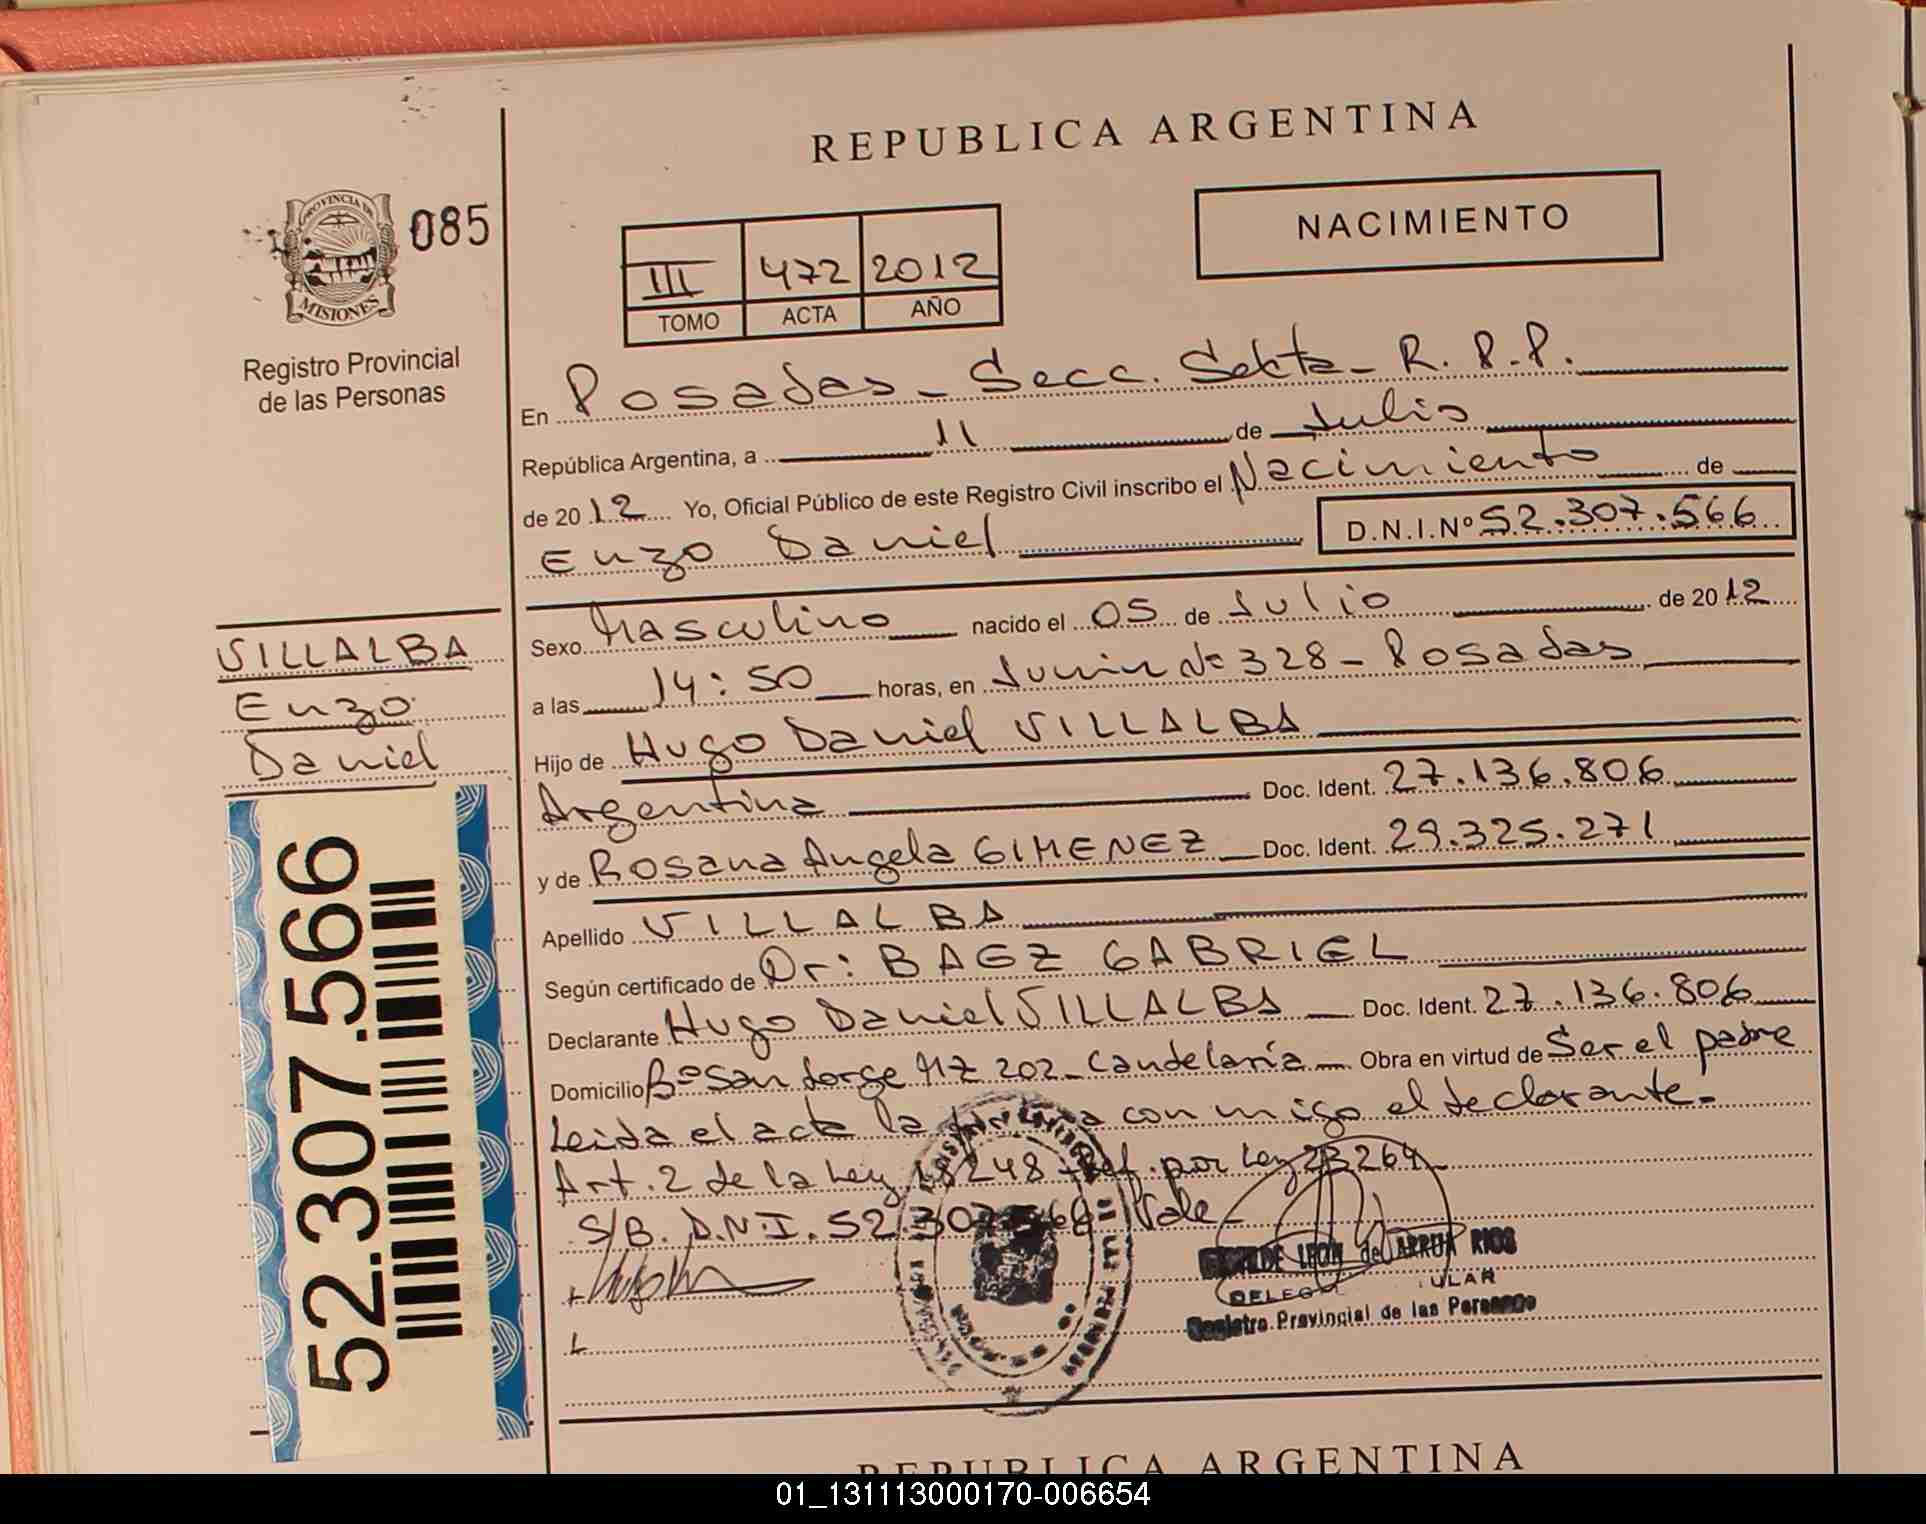 REPUBLICA ARGENTINA
PROVINCIA DE
MISIONES
085
NACIMIENTO
III 472 2012
TOMO ACTA AÑO
Registro Provincial
de las Personas
En Posadas - Secc. Sexta - R. P. P.
República Argentina, a 11 de Julio
de 2012 Yo, Oficial Público de este Registro Civil inscribo el Nacimiento de
Enzo Daniel D.N.I.Nº 52.307.566
Sexo Masculino nacido el 05 de Julio de 2012
a las 14:50 horas, en Junin Nº 328 - Posadas
Hijo de Hugo Daniel VILLALBA
Argentina Doc. Ident. 27.136.806
y de Rosana Angela GIMENEZ Doc. Ident. 29.325.271
Apellido VILLALBA
Según certificado de Dr: BAEZ GABRIEL
Declarante Hugo Daniel VILLALBA Doc. Ident. 27.136.806
Domicilio Bº San Jorge MZ 202 - Candelaría - Obra en virtud de Ser el padre
Leida el acta la con migo el declarante.-
Art. 2 de la Ley 18248 - Ref. por Ley 23264
S/B. D.N.I. 52.307.566 - Vale -
LEON de ARRUA RIOS
Registro Provincial de las Personas
VILLALBA
Enzo
Daniel
52.307.566
REPUBLICA ARGENTINA
01_131113000170-006654